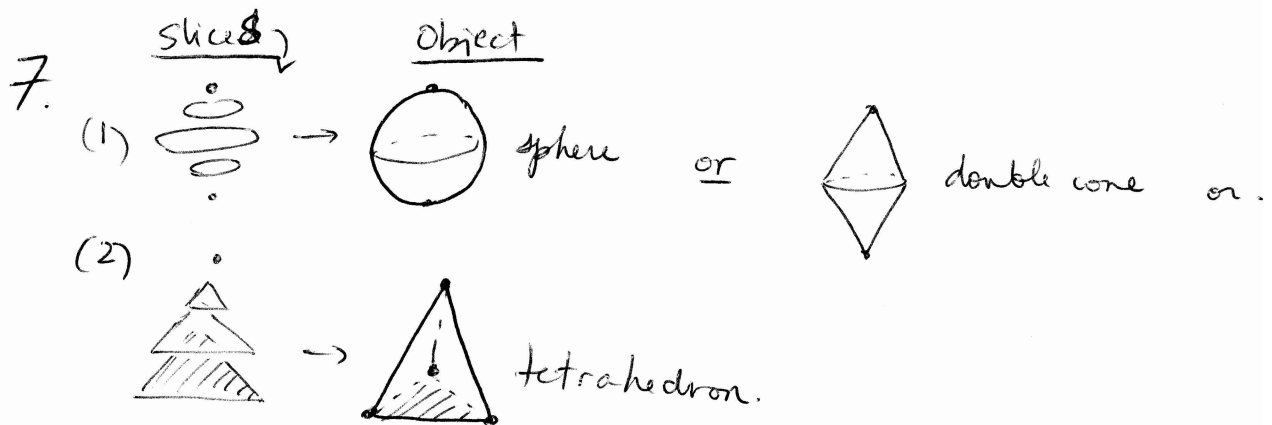 7.
slices Object
(1) → sphere or double cone or.
(2) → tetrahedron.